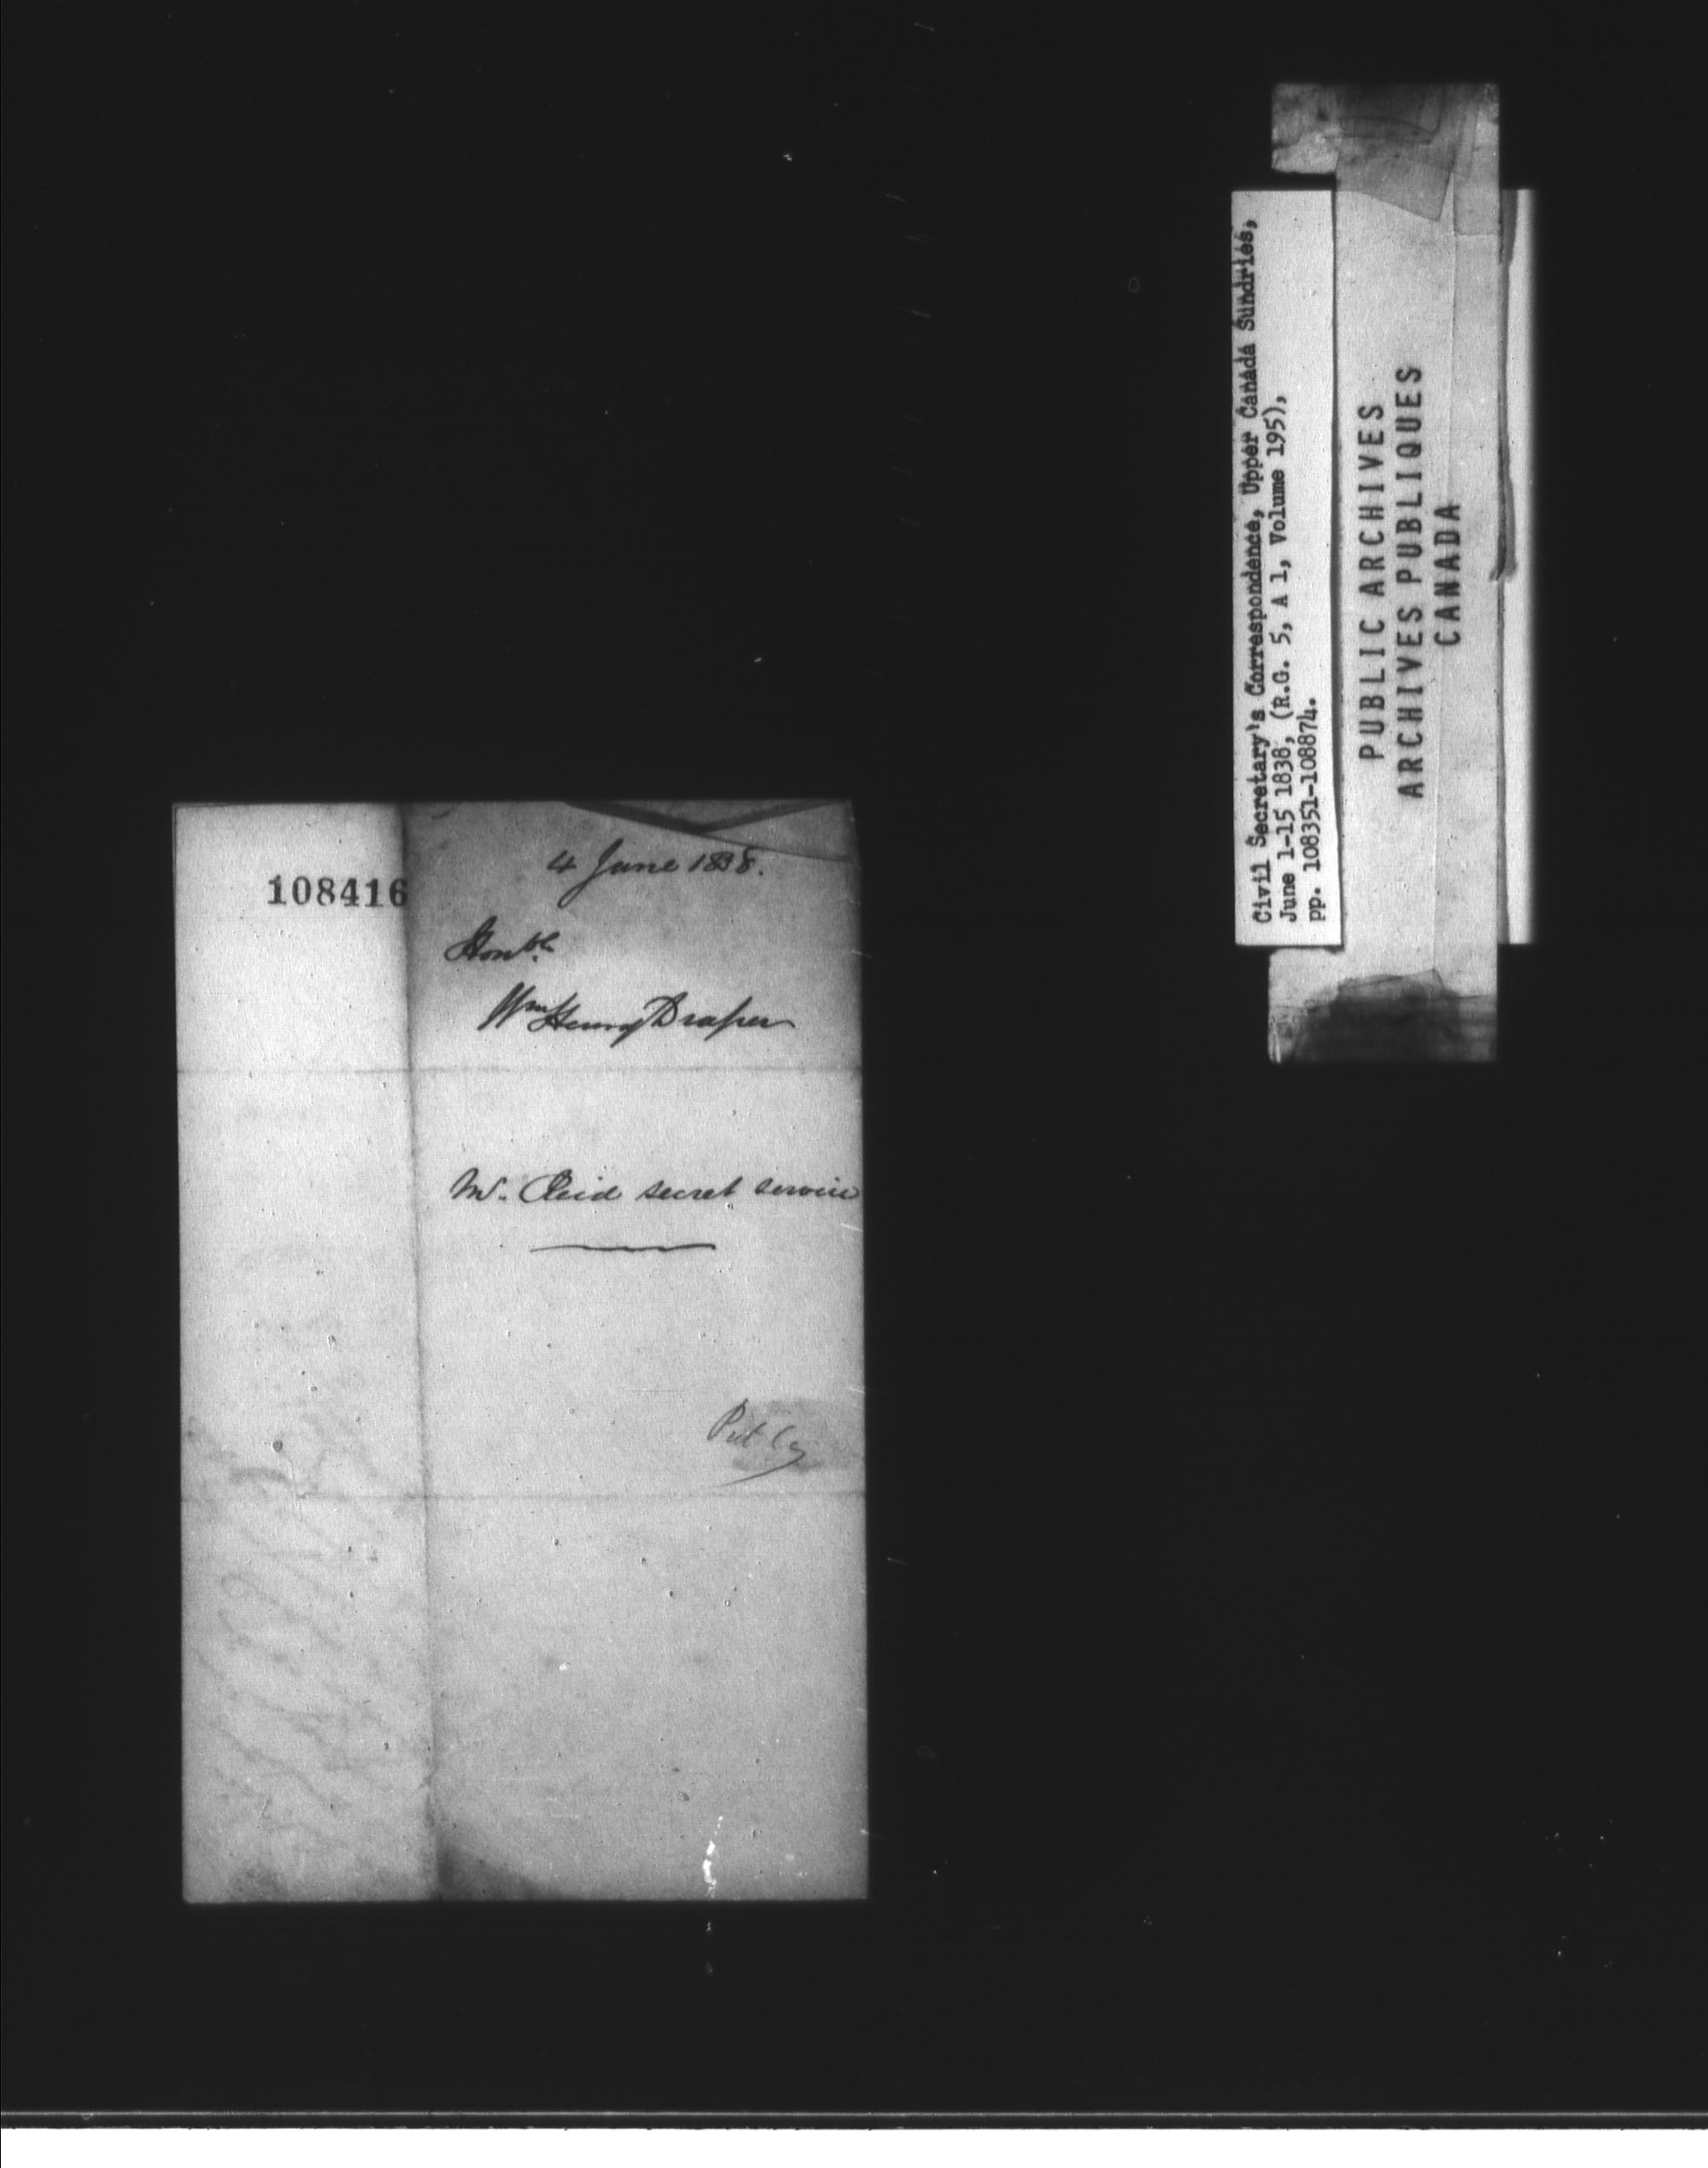 108416
4 June 1838.
Honble
Wm Henry Draper
Mr. Reid secret service
Civil Secretary's Correspondence, Upper Canada Sundries,
June 1-15 1838, (R.G. 5, A 1, Volume 195),
pp. 108351-108874.
PUBLIC ARCHIVES
ARCHIVES PUBLIQUES
CANADA